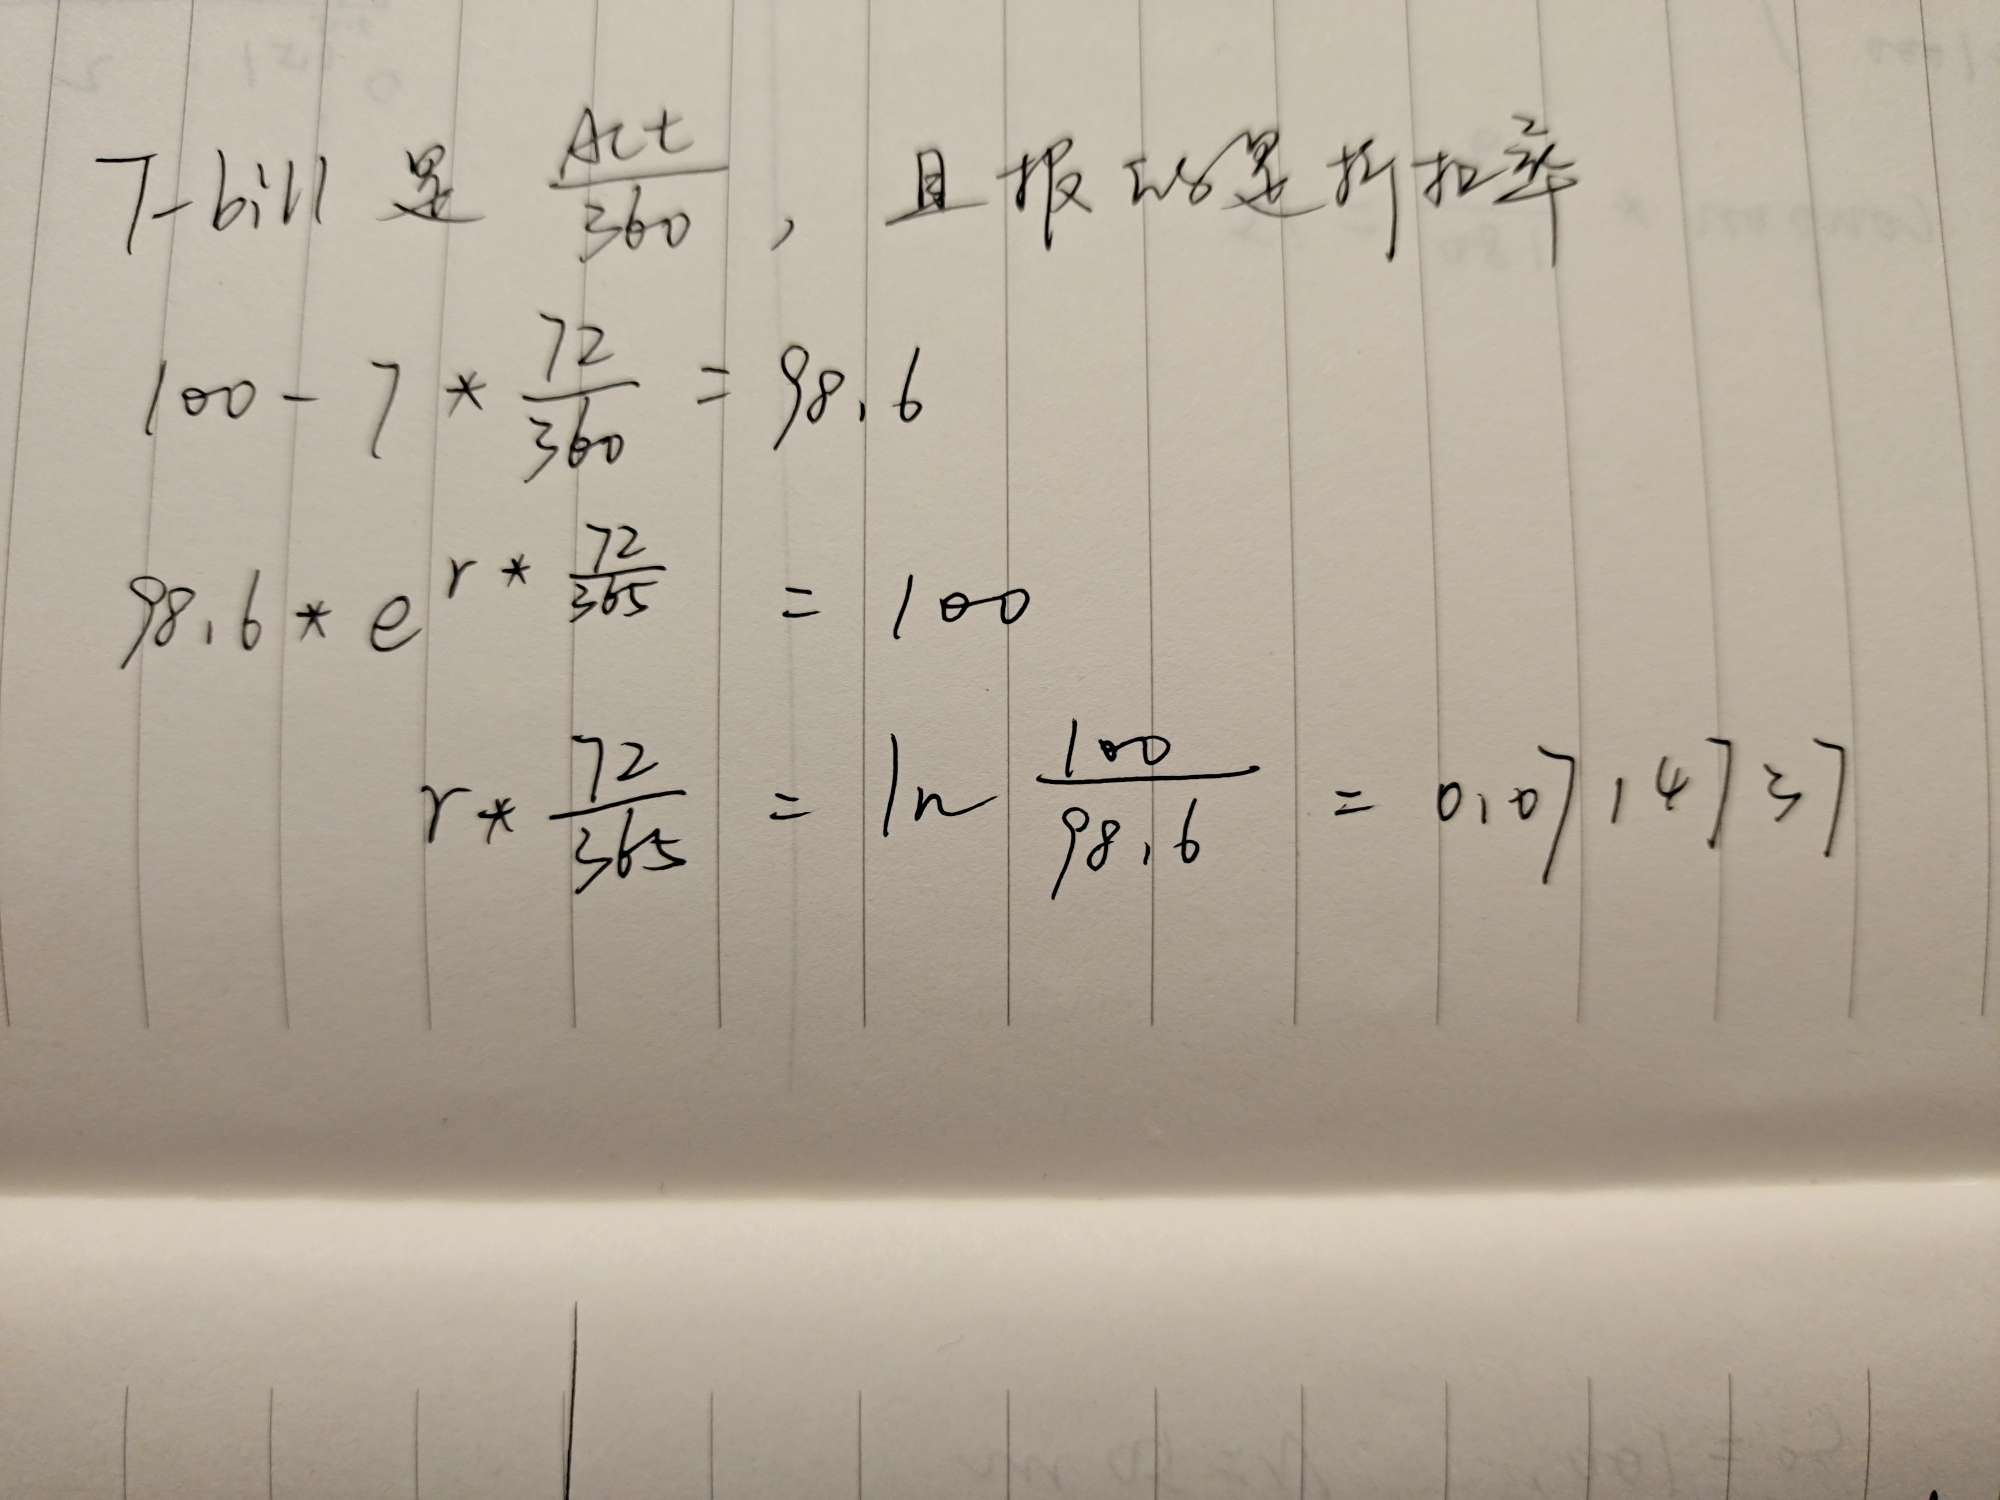 T-bill 是 Act/360, 且报的是折扣率
100 - 7 * 72/360 = 98.6
98.6 * e^{r * 72/365} = 100
r * 72/365 = ln 100/98.6 = 0.0714737